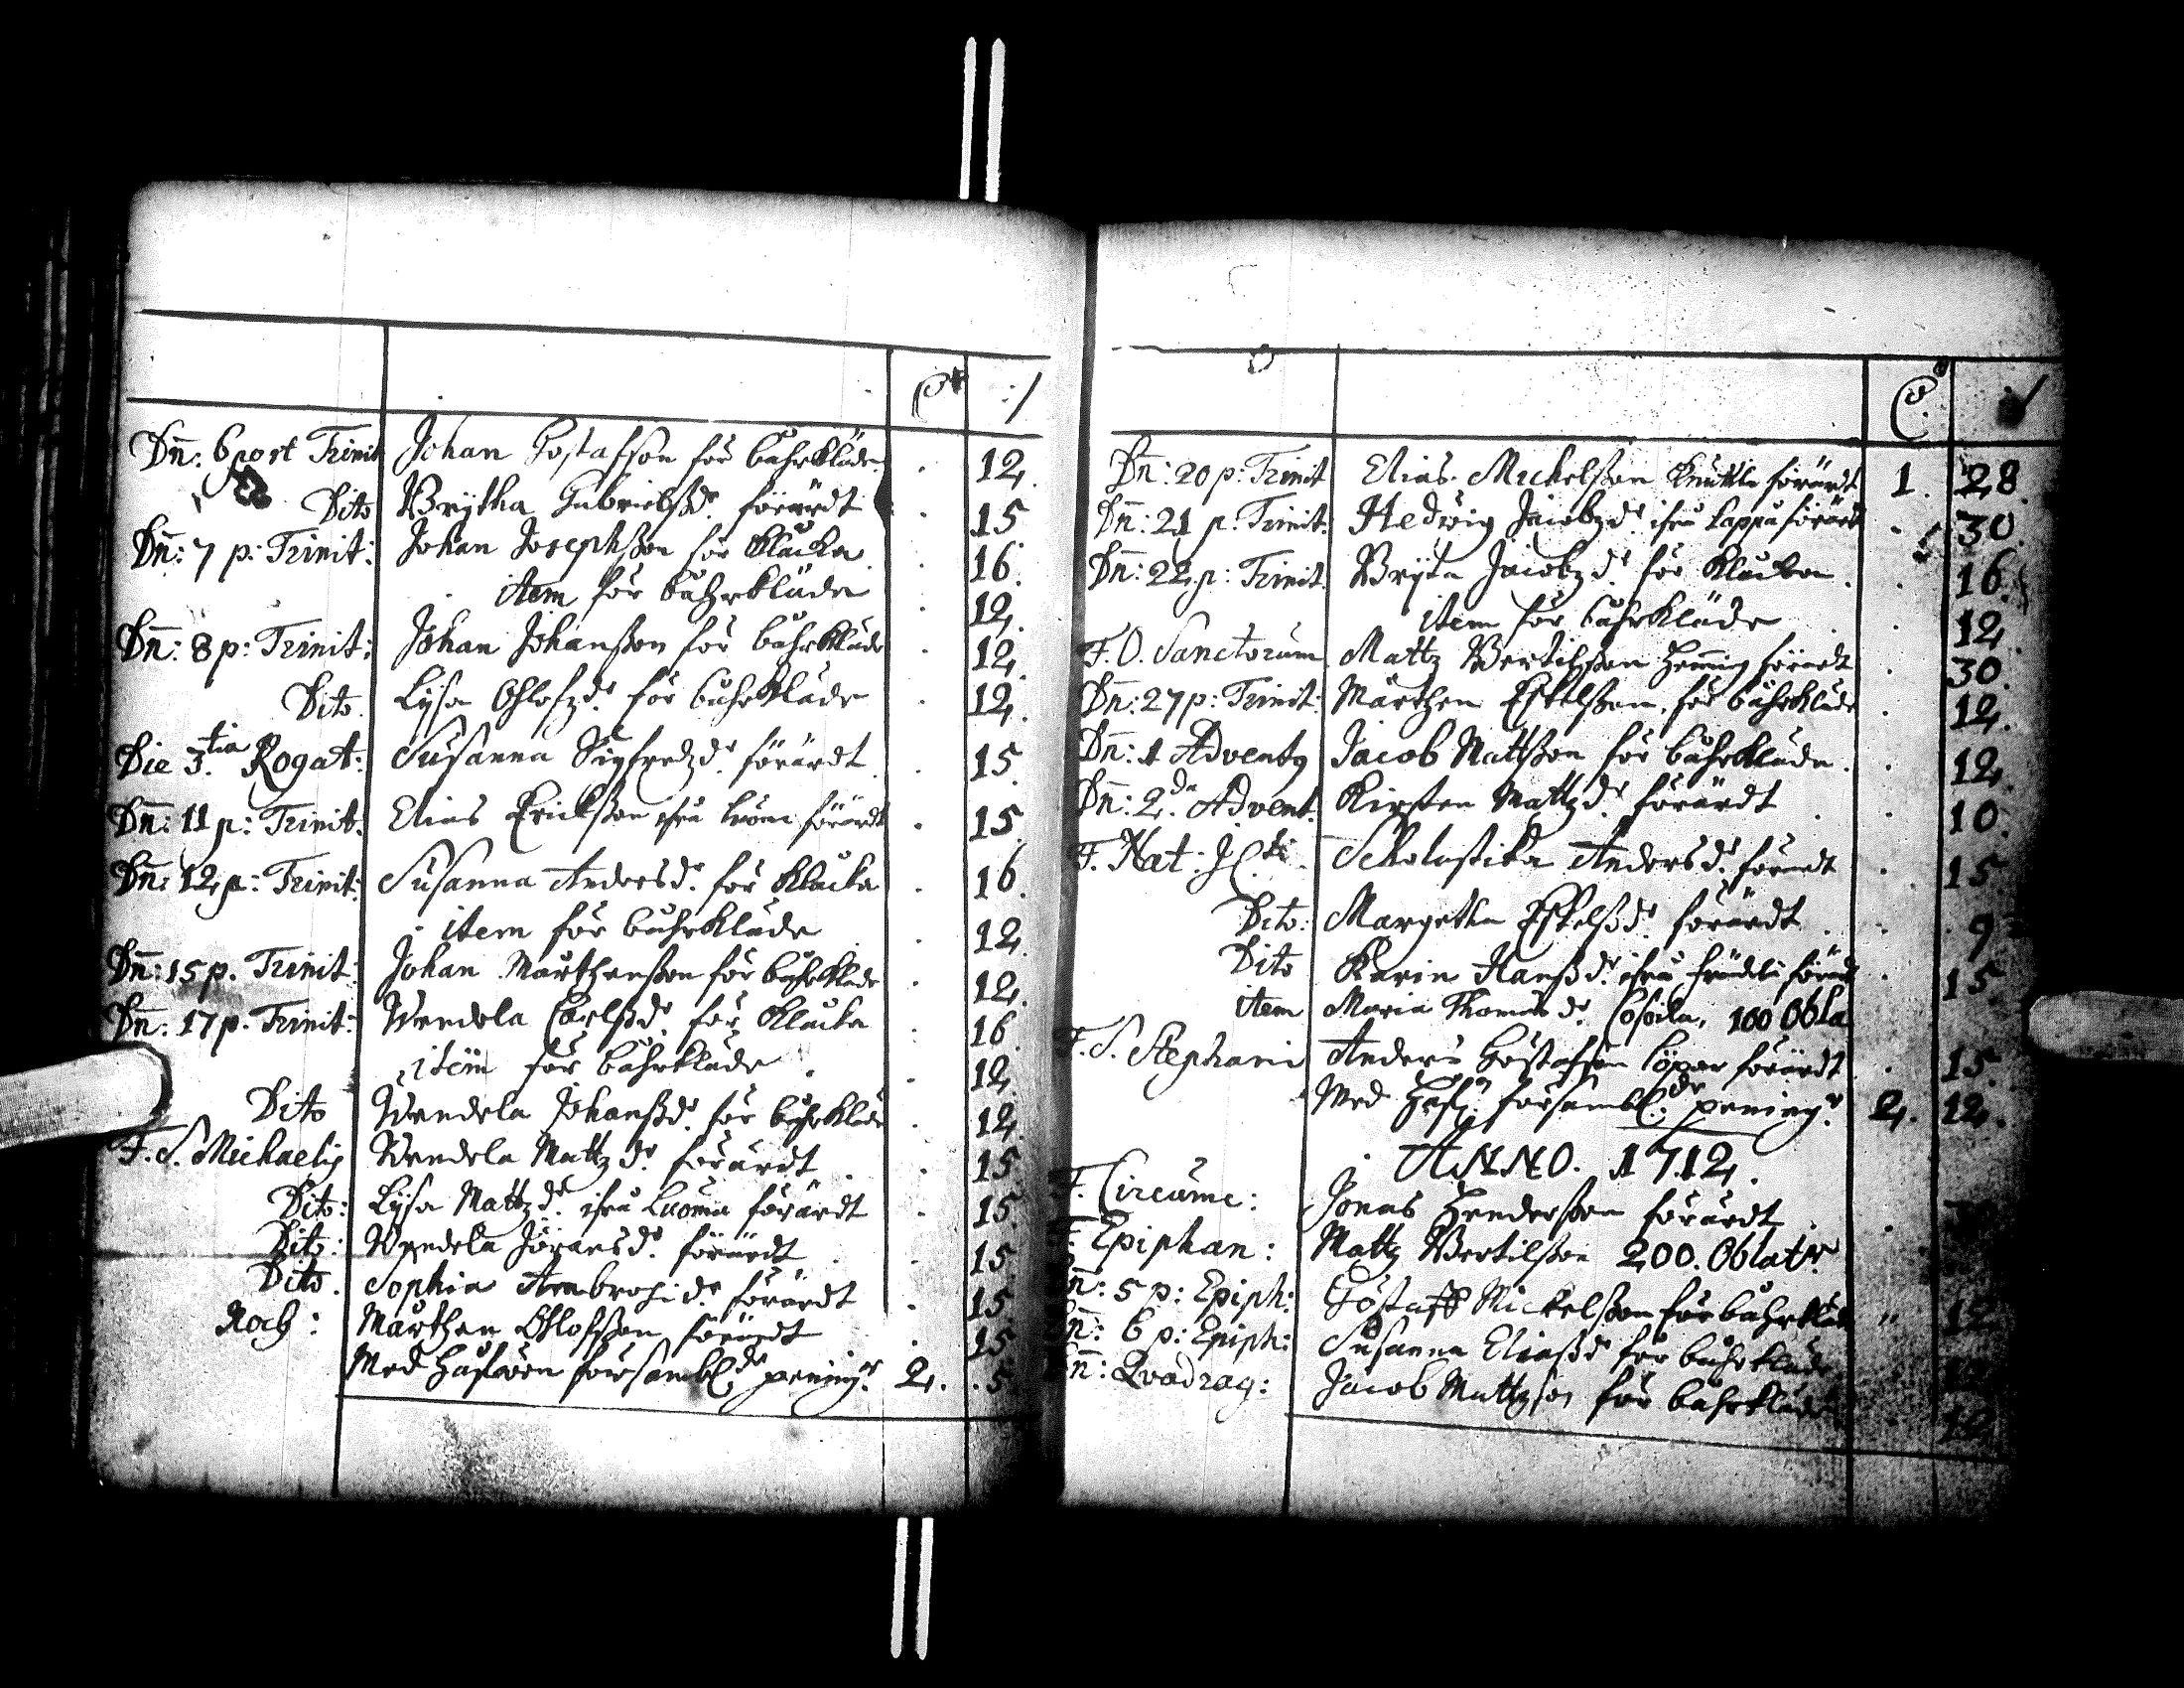 Dn̄: 6 post Trinit Johan Gostafson för båhrkläde . 12.
Dito Brijtha Gabrielsßd:r förärdt . 15
Dn̄: 7 p: Trinit: Johan Josephßon för klåcka . 16.
item för båhrkläde . 12.
Dn̄: 8 p: Trinit: Johan Johanßon för båhrkläde . 12.
Dito. Lijsa Ohlofzd:r för båhrkläde . 12.
Die 3.tia Rogat: Susanna Sigfredzd:r förärdt . 15.
Dn̄: 11 p: Trinit: Elias Erickßon ifrå Luoma förärdt . 15.
Dn̄: 12 p: Trinit: Susanna Andersd:r för klåcka . 16.
item för båhrkläde . 12.
Dn̄: 15 p. Trinit: Johan Mårthenßon för båhrkläde . 12.
Dn̄: 17 p. Trinit: Wendela Carlßd:r för klåcka . 16.
item för båhrkläde . 12.
Dito Wendela Johanßd:r för båhrkläde . 12.
F. S. Michaelis Wendela Mattzd:r förärdt . 15.
Dito: Lijsa Mattzd:r ifrå Luoma förärdt . 15.
Dito: Wendela Jöransd:r förärdt . 15.
Dito. Sophia Ambrosid:r förärdt . 15.
Mårthen Ohlofßon förärdt . 15.
Med Håfwen försambl:de pening:r 2. 5.
Dn̄: 20 p: Trinit Elias Mickelßon Knuttila förärdt 1. 28.
Dn̄: 21 p. Trinit: Hedwig Jacobzd:r ifrå Lappu förärdt . 30.
Dn̄: 22 p: Trinit. Brijta Jacobzd:r för klåckon . 16.
item för båhrkläde . 12.
F. O. Sanctorum Mattz Bertilßon Heming förärdt . 30.
Dn̄: 27 p: Trinit: Mårthen Eskelßon för båhrkläde . 12.
Dn̄: 1 Adventq Jacob Mattßon för båhrkläde . 12.
Dn̄: 2.da Advent. Kirsten Mattzd:r förärdt . 10.
F. Nat: J C.ti Scholastika Andersd:r förärdt . 15
Dito: Margetha Eskelßd:r förärdt . 9
Dito Karin Hanßd:r ifrå förärdt . 15.
item Maria Thomasd:r 100 Obla
F. S. Stephani Anders Göstafßon Löpar förärdt . 15.
Med Håf:n försambl:de pening:r 2. 12.
ANNO. 1712.
F. Circumc: Jonas Henderßon förärdt .
F. Epiphan: Mattz Bertilßon 200. Oblat:r
Dn̄: 5 p: Epiph: Göstaff Mickelßon för båhrkläde " 12
Dn̄: 6 p: Epiph: Susanna Eliaßd:r för båhrkläde
Dn̄: Qvadrag: Jacob Mattzson för båhrkläde . 12